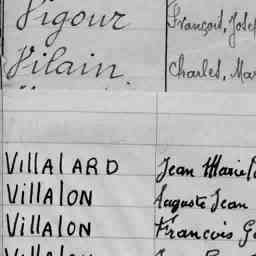 Vigour François, Jose
Vilain Charles, Mar
VILLALARD Jean Marie
VILLALON Auguste Jean
VILLALON Francois G